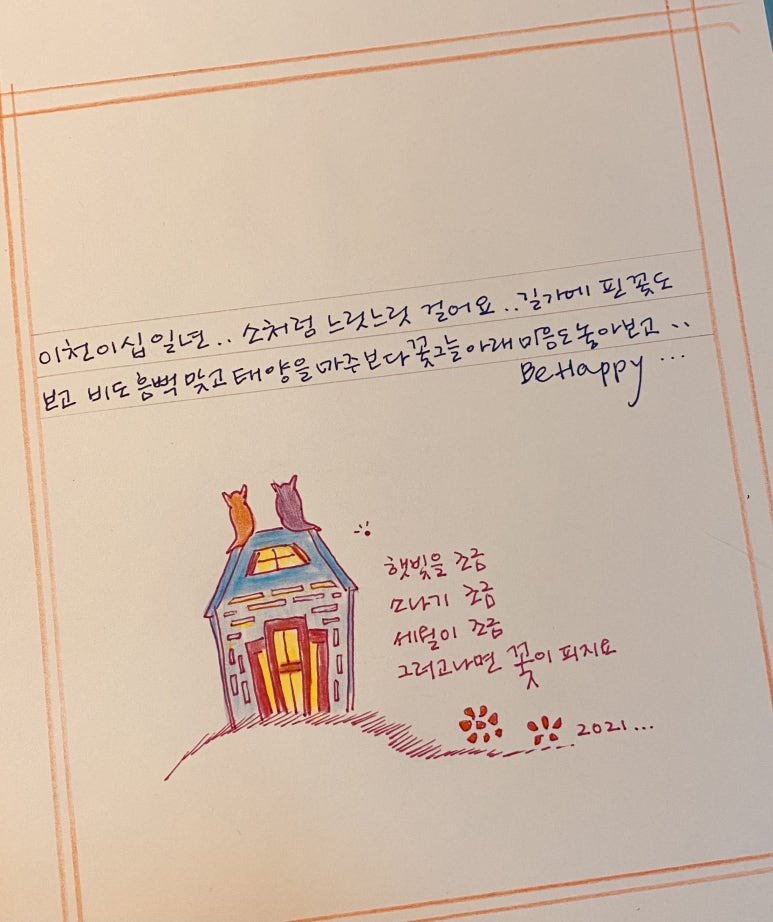 이천이십 일년.. 소처럼 느릿느릿 걸어요..길가에 핀 꽃도
보고 비도 흠뻑 맞고 태양을 마주보다 꽃그늘 아래 마음도 놓아보고 ..
Be Happy ...
햇빛을 조금
소나기 조금
세월이 조금
그러고나면 꽃이 피지요
2021...